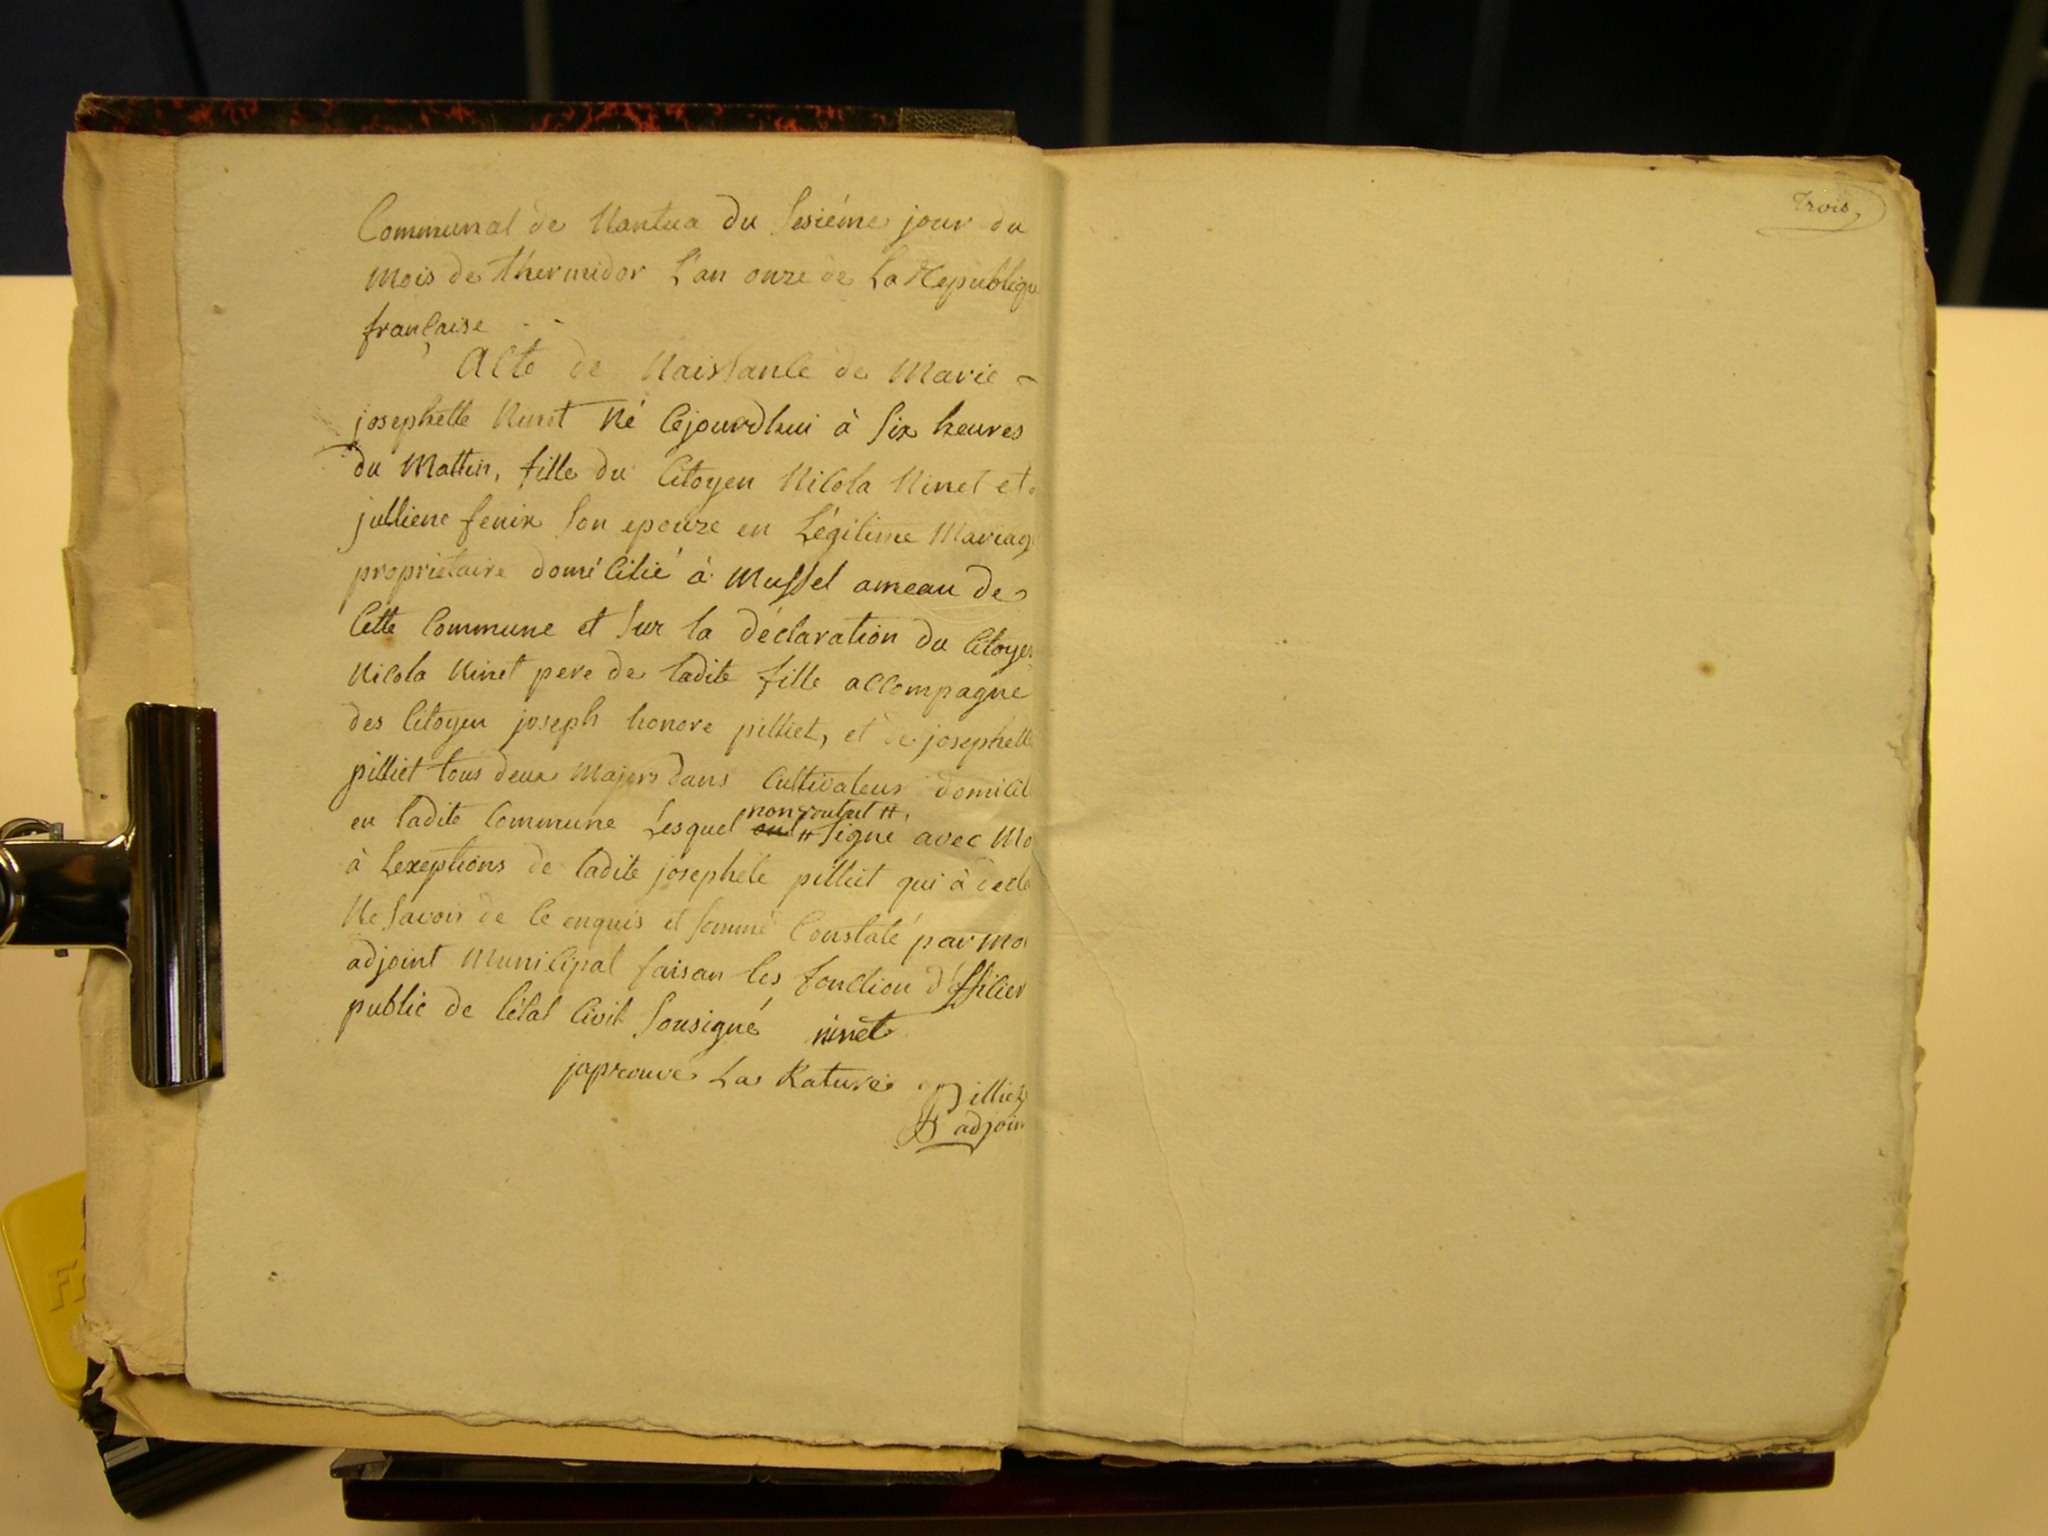 Communal de Nantua du Sesiéme jour du
mois de thermidor L'an onze de La Republique
française
Acte de Naissance de Marie -
josephette Ninet Né Cejourdhui à Six heures
du Mattin, fille du Citoyen Nicola Ninet et
jullienne fenix Son epouze en Légitime Mariag
proprietaire domécilié à Mussel ameau de
Cette Commune et Sur la déclaration du Citoyen
Nicola Ninet pere de ladite fille accompagné
des Citoyen joseph honore pilliet, et de josephette
pilliet tous deux Majors dans Cultivateur domicil
en ladite Commune Lesquel
signé avec Mo
à Lexeptions de ladite josephete pilliet qui à decla
Ne Savoir de Ce enquis et Sommé Constaté par Moi
adjoint Municipal faisan les fonction d'officier
public de l'état Civil Sousigné ninet
japrouve La Rature Pilliet
adjoin
Trois